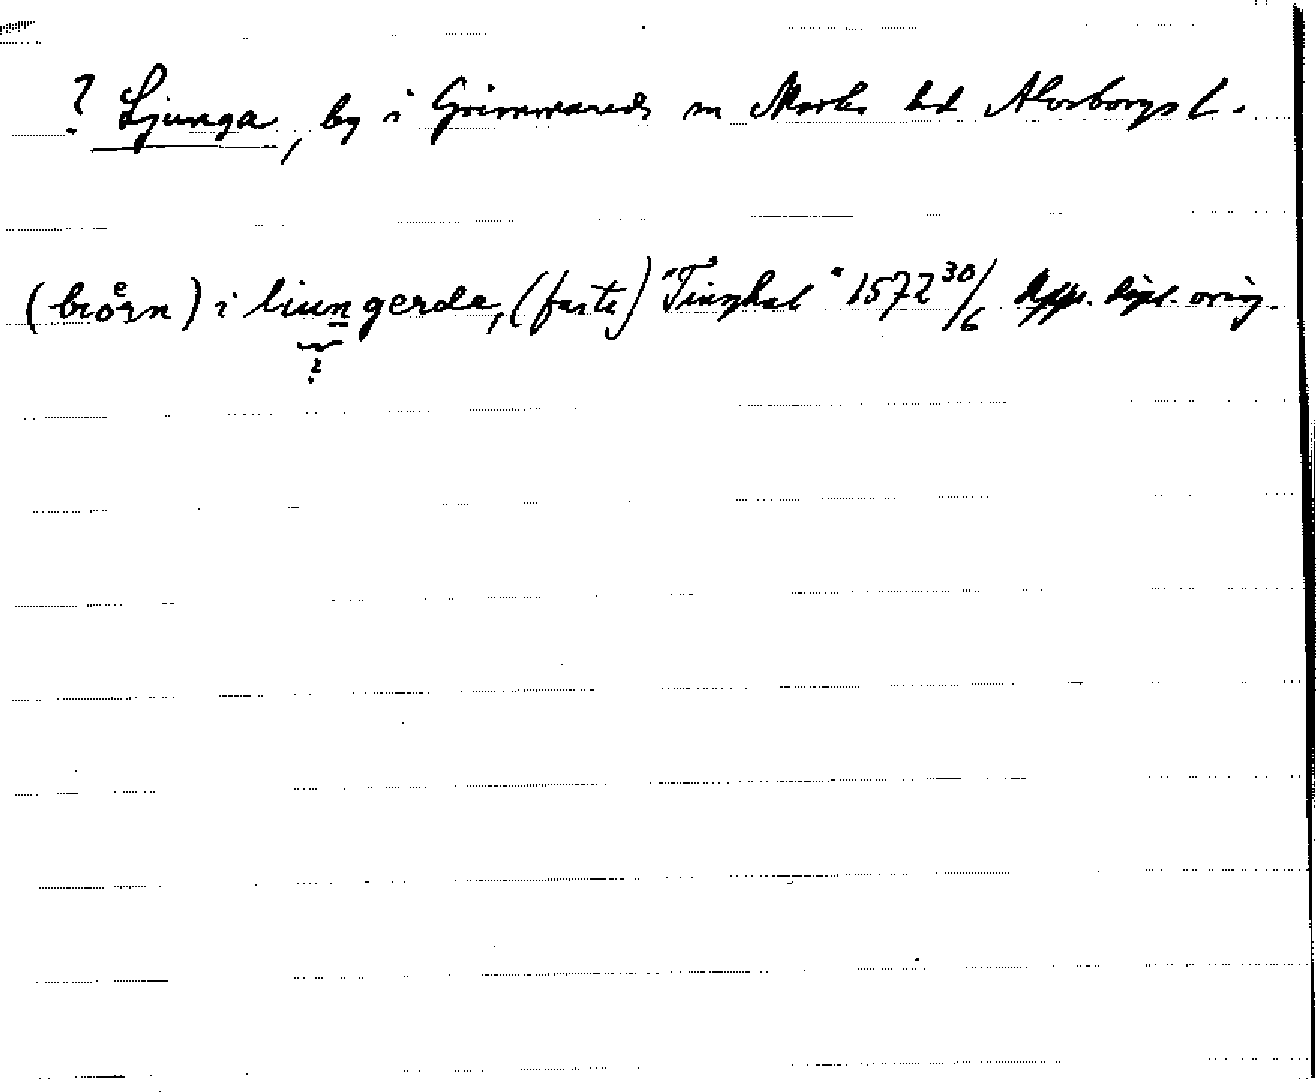 ? Ljunga, by i Grimmareds sn Marks hd Älvsborgs l.
(biorn) i liungerda, (faste) "Tinghal" 1572 30/6 dipl. orig.
?